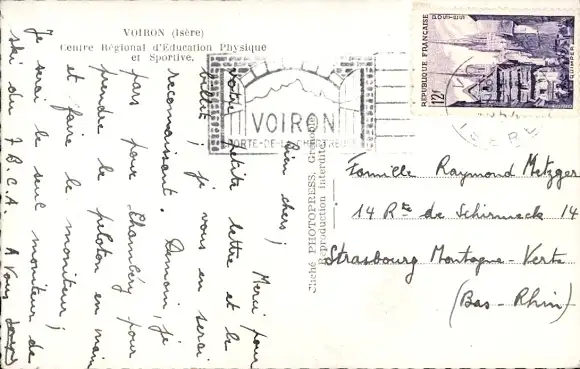 VOIRON (Isère)
Centre Régional d'Éducation Physique
et Sportive.
Bien chers,
Merci pour
votre petite lettre et le
billet ; je vous en serai
reconnaissant. Demain, je
pars pour Chambéry pour
prendre le peloton en main
et faire le moniteur ;
Je serai le seul moniteur de
ski du 7 B.C.A. A Vous
Cliché PHOTOPRESS, Grenoble
Reproduction interdite
VOIRON
PORTE-DE-LA-CHARTREUSE
REPUBLIQUE FRANÇAISE
POSTES
QUIMPER
12f
Famille Raymond Metzger
14 Rte de Schirmeck 14
Strasbourg Montagne-Verte
(Bas-Rhin)